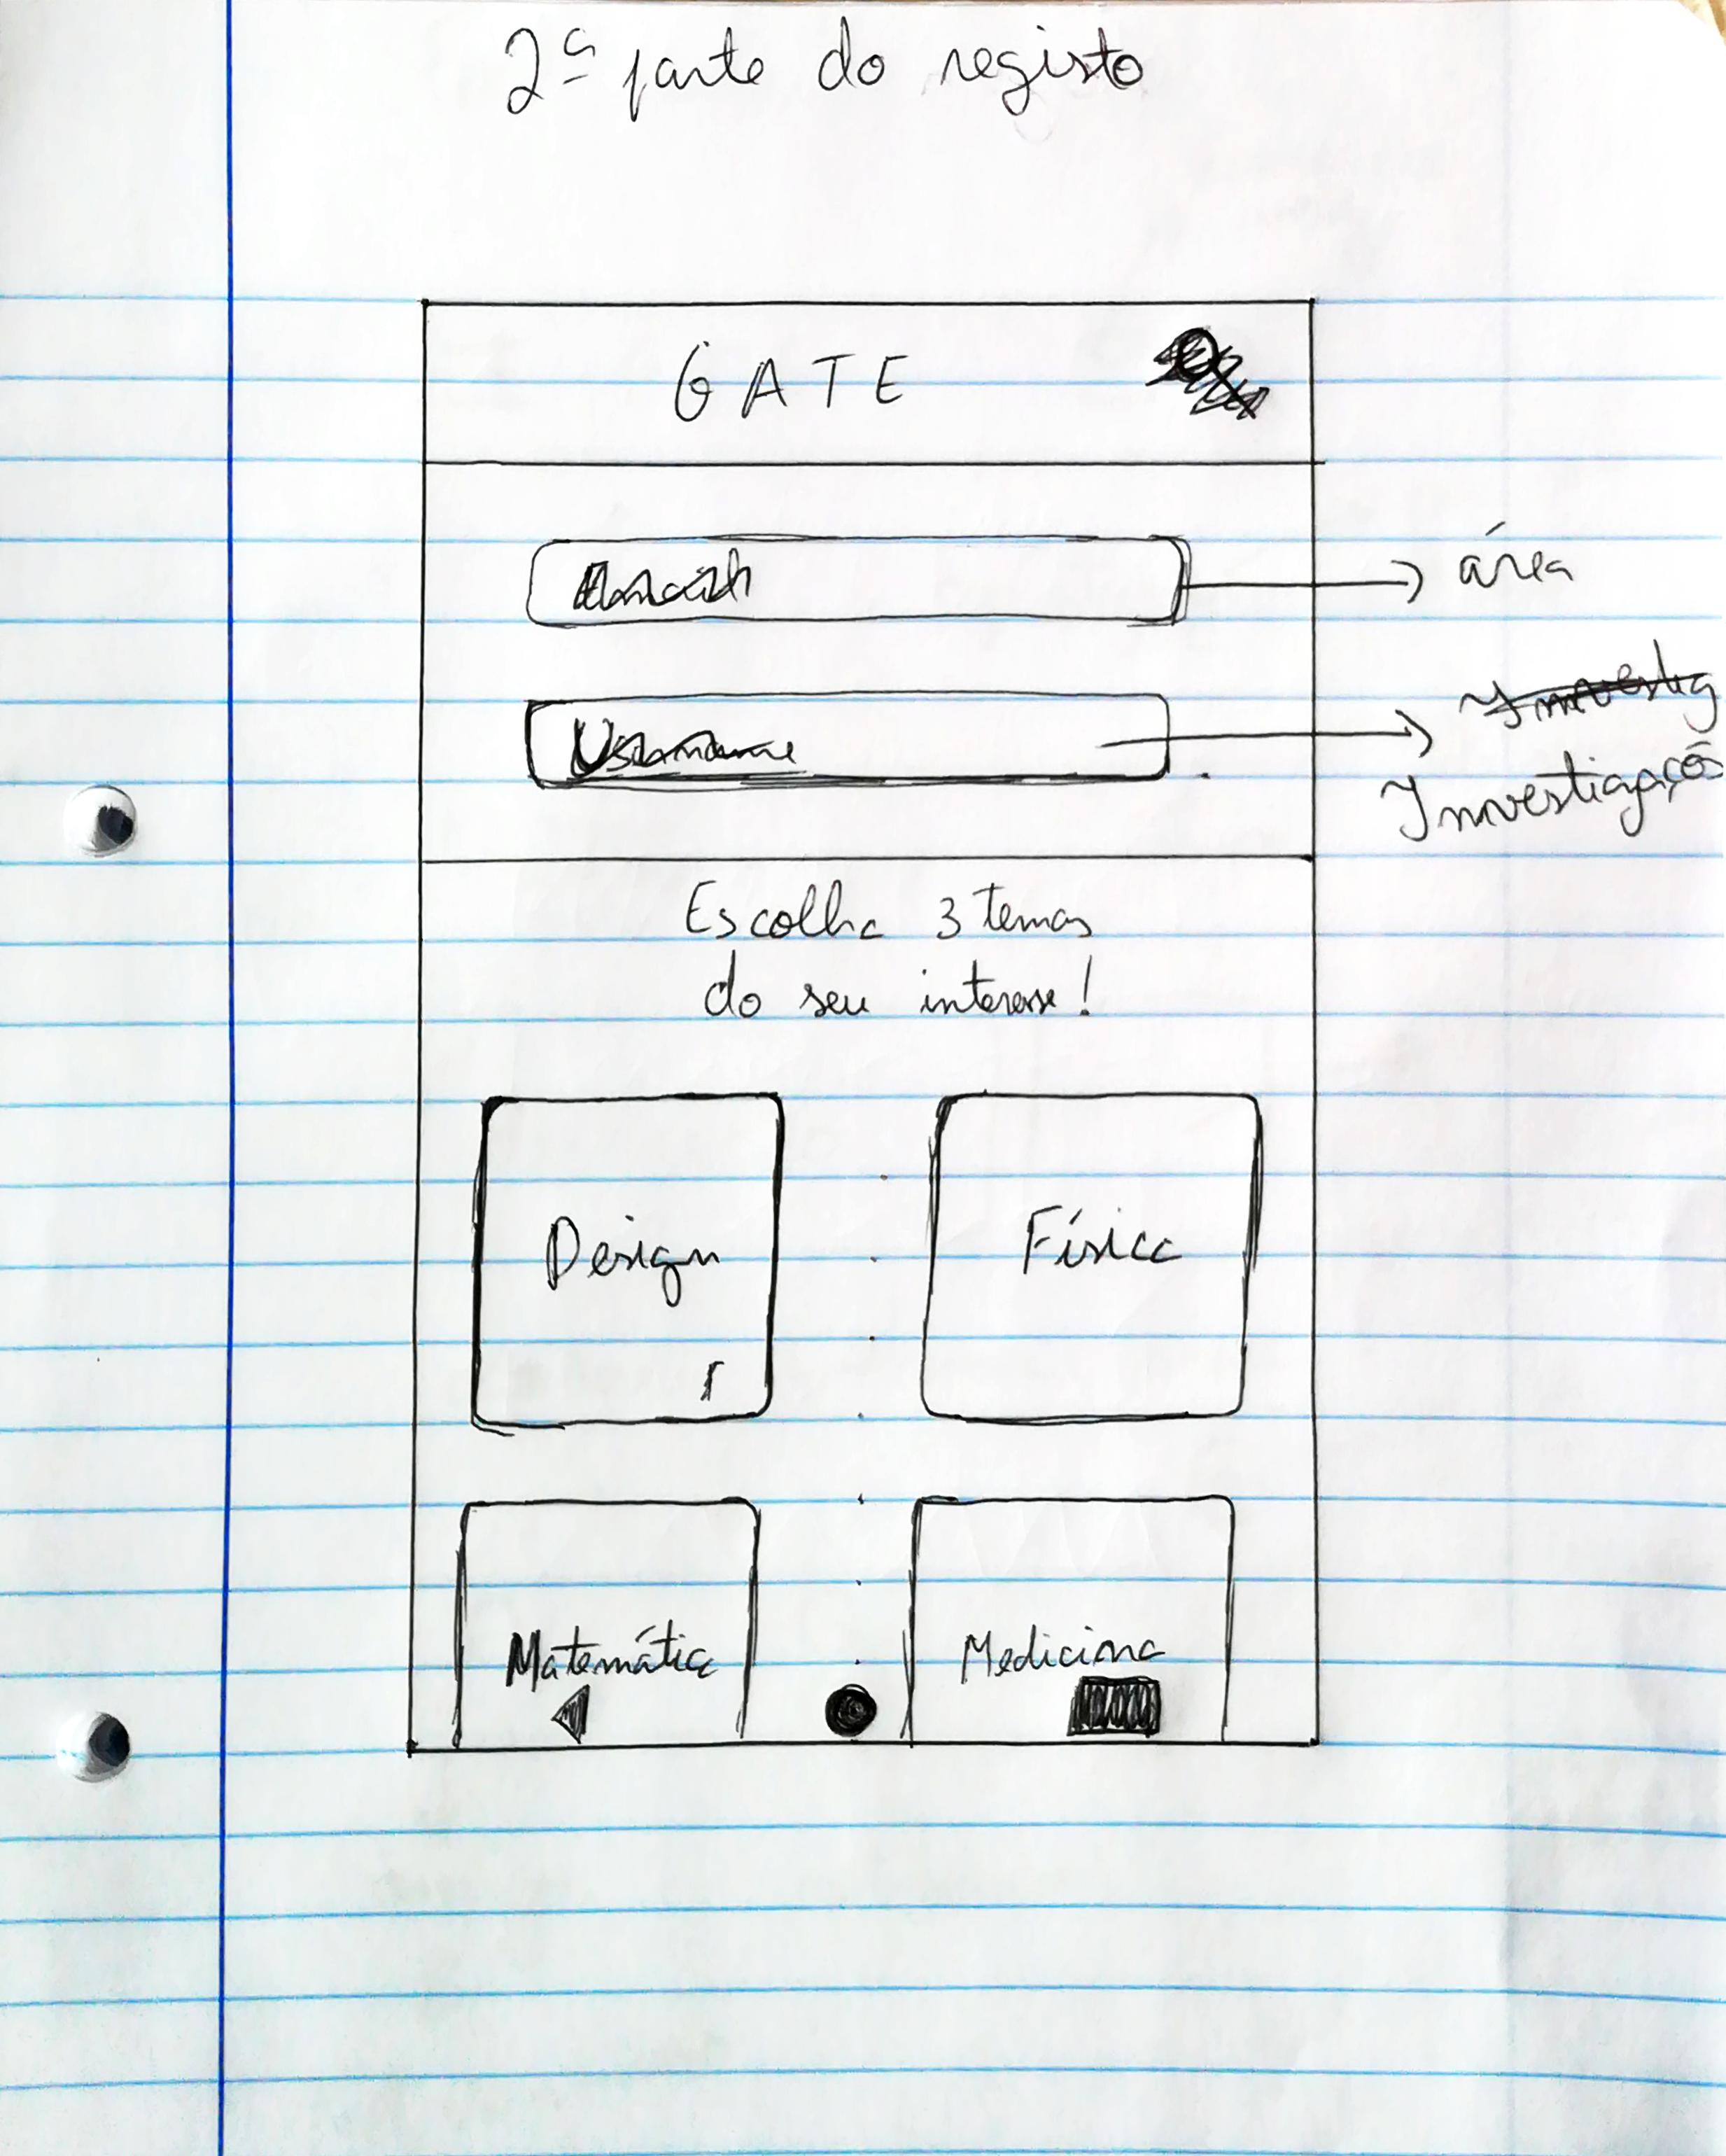 2ª parte do registo
GATE
área
Username
Investig
Investigaçõ
Escolha 3 temas
do seu interesse!
Design
Física
Matemática
Medicina